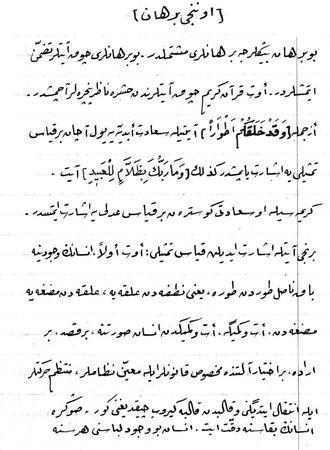 [اوننجی برهان]
بو برهان بیڭلرجه برهانلری مشتملدر. بو برهانلری چوق آیتلر تضمّن
ایتمشلردر. أوت قرآن کریم چوق آیتلرندن حشره ناظر پنجره لر آچمشدر.
ازجمله [وَقَدْ خَلَقَكُمْ اَطْوَارًا] آیتیله سعادت أبدیّه یه یول آچان بر قیاس
تمثیلی یه اشارت یاپمشدر. کذلك [وَمَا رَبُّكَ بِظَلَّامٍ لِلْعَبِيدِ] آیت
کریمه سیله او سعادتی کوسترەن بر قیاس عدلی یه اشارت ایتمشدر.
برنجی آیتله اشارت ایدیلن قیاس تمثیلی: أوت أولاً، انسانك وجودینه
باق ناصل طوردن طوره، یعنی نطفه دن علقه یه، علقه دن مضغه یه
مضغه دن، أت وکمیگه، أت وکمیکدن انسان صورتنه، بر قصد، بر
اراده، بر اختیار آلتنده مخصوص قانونلرله معیّن نظاملر، منتظم حرکتلر
ایله انتقال ایتدیگنی وقالبدن قالبه کیروب چیقدیغنی کور. صوڭره
انسانك بقاسنه دقّت ایت. انسان بو وجود لباسنی هر سنه